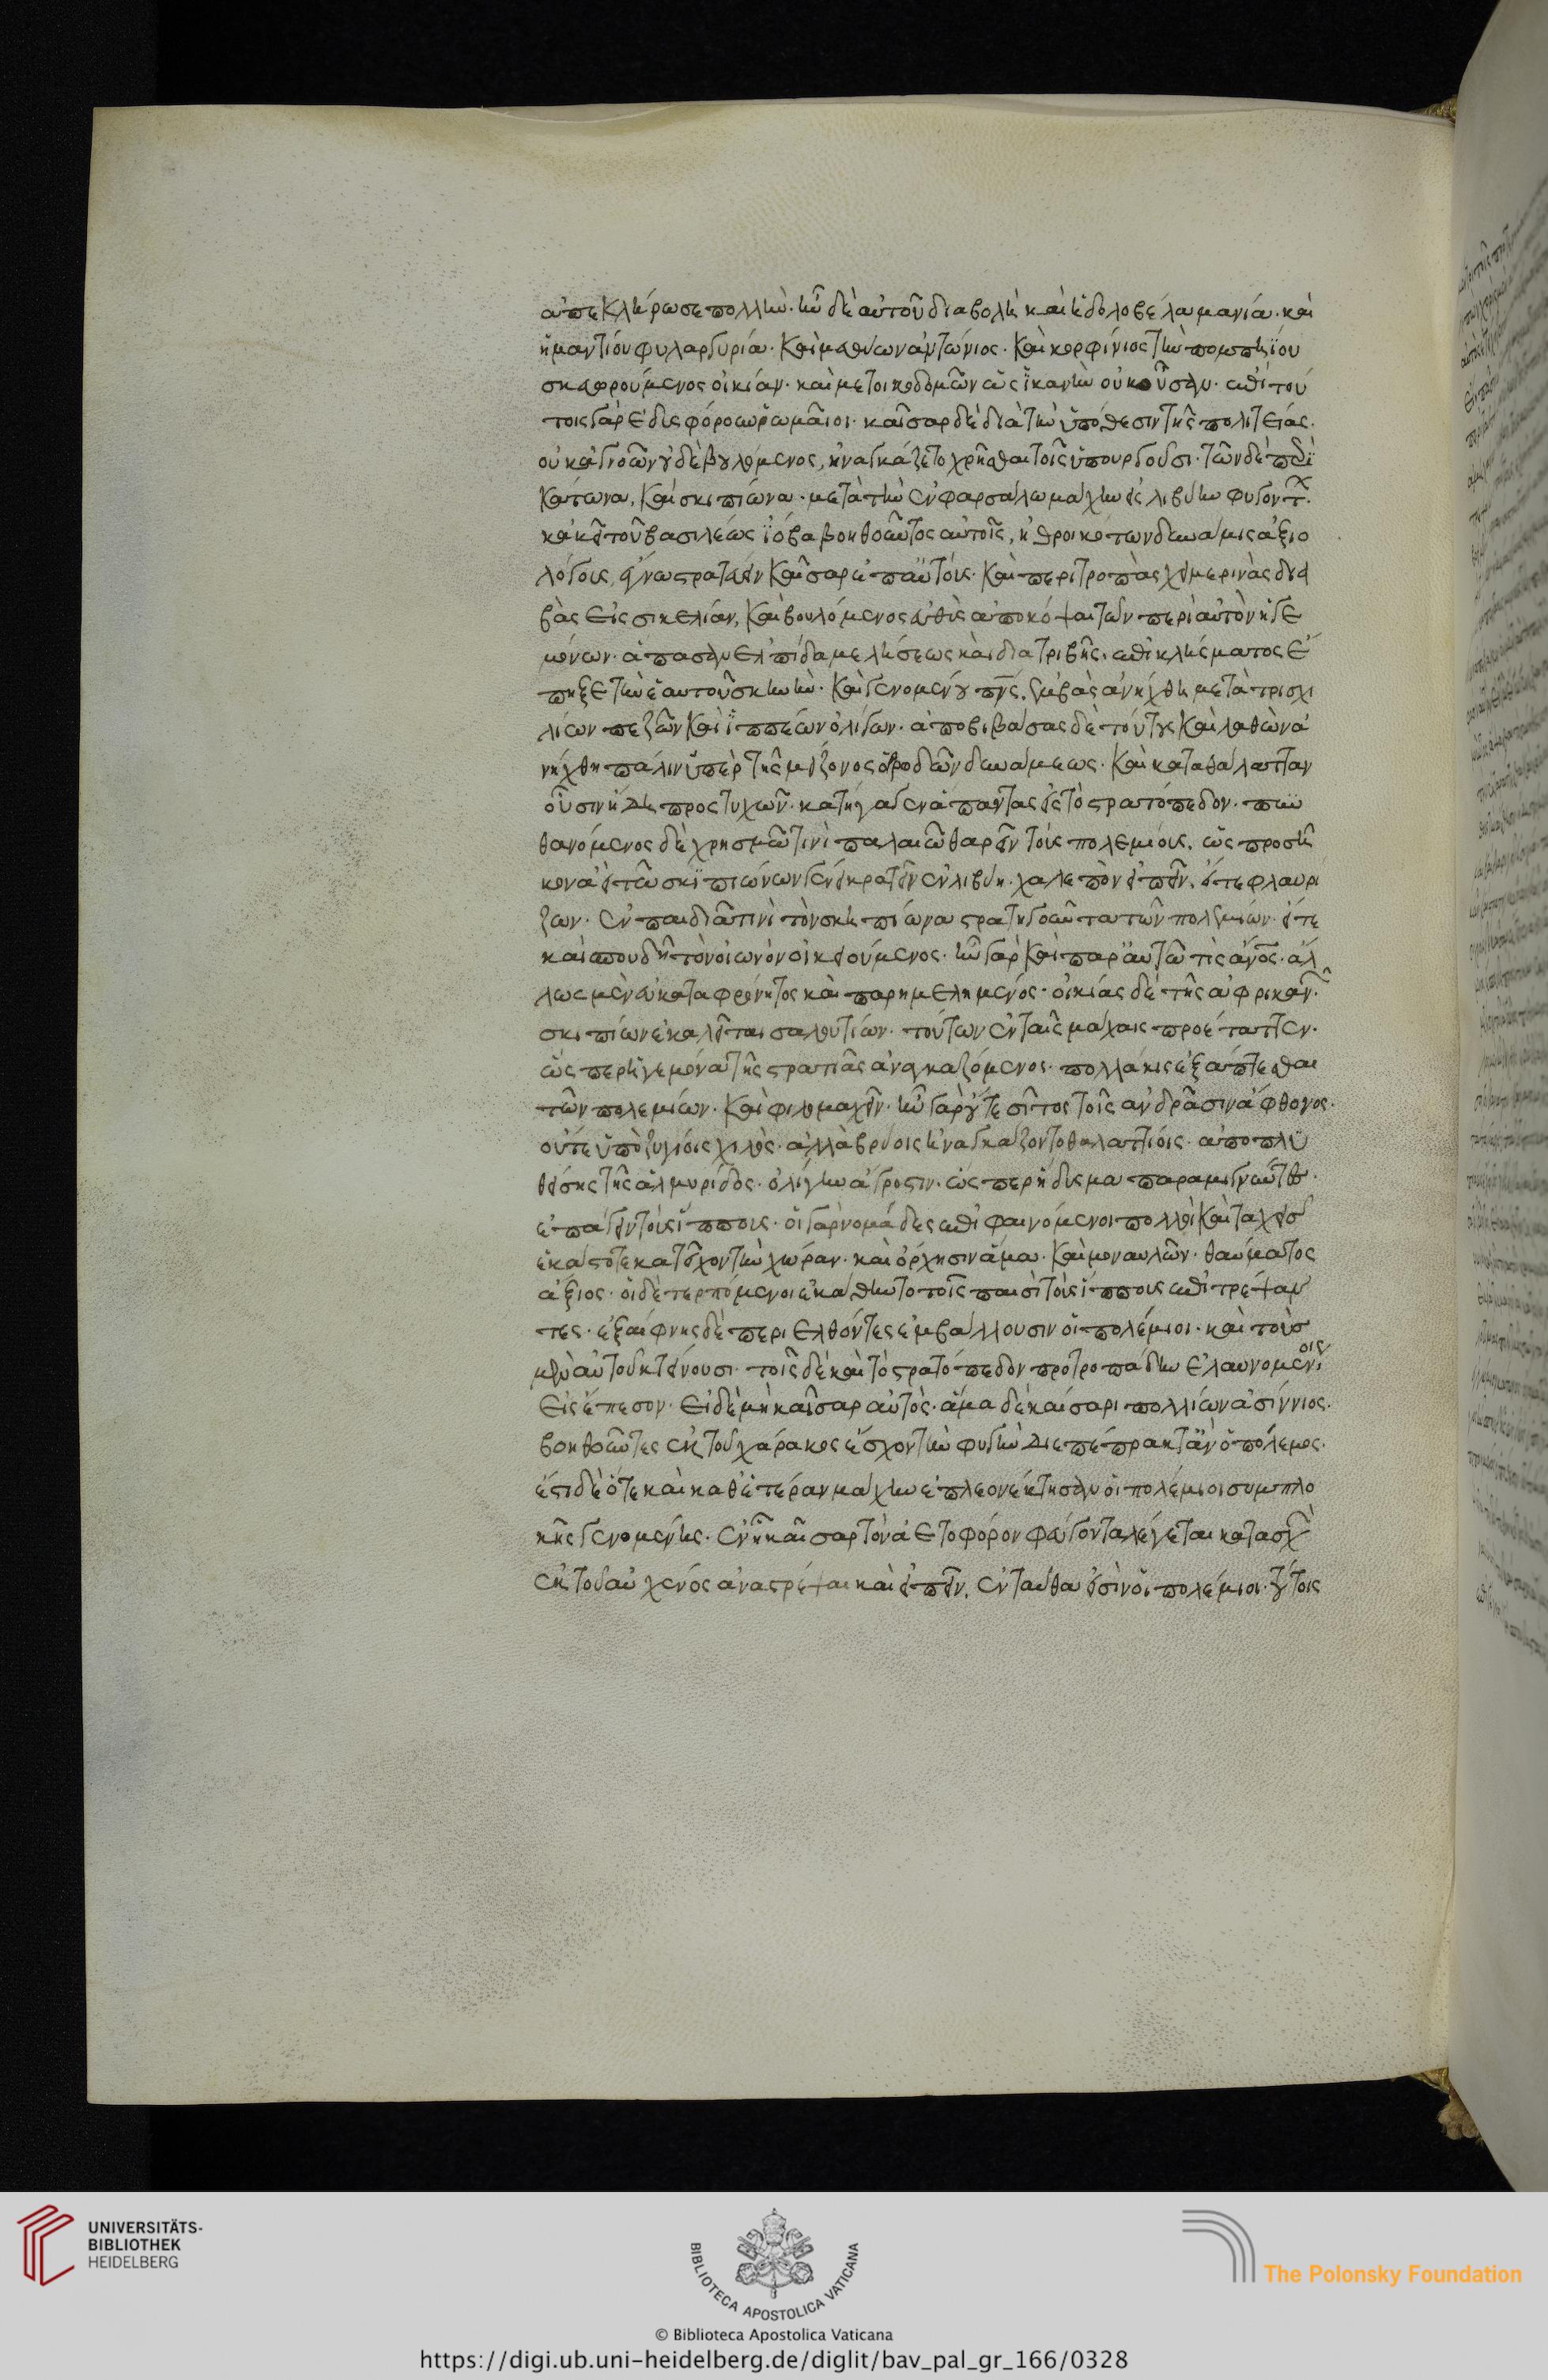 ἀπεκλήρωσε πολλήν. ἦν δὲ αὐτοῦ διαβολὴ καὶ ἡ δολοβέλα μανία. καὶ
ἡ μαντίου φυλαργυρία. καὶ μεθύων ἀντώνιος. καὶ κορφίνιος τὴν πομπηΐου
σκαφρούμενος οἰκίαν. καὶ μετοικοδομῶν ὡς ἱκανὴν οὐκ οὖσαν. ἐπὶ τού
τοις γὰρ ἐδυσφόρουν ῥωμαῖοι. καῖσαρ δὲ διὰ τὴν ὑπόθεσιν τῆς πολιτείας.
οὐκ ἀγνοῶν οὐδὲ βουλόμενος, ἠναγκάζετο χρῆσθαι τοῖς ὑπουργοῦσι. τῶν δὲ περὶ
κάτωνα, καὶ σκιπίωνα. μετὰ τὴν ἐν φαρσάλω μάχην εἰς λιβύην φυγόντων.
κἀκεῖ τοῦ βασιλέως ἰόβα βοηθοῦντος αὐτοῖς, ἠθροικότων δυνάμεις ἀξιο
λόγους, ἔγνω στρατεύειν καῖσαρ ἐπ' αὐτούς. καὶ περὶ τροπὰς χειμερινὰς δια
βὰς εἰς σικελίαν, καὶ βουλόμενος εὐθὺς ἀποκόψαι τῶν περὶ αὐτὸν ἡγε
μόνων. ἅπασαν ἐλπίδα μελήσεως καὶ διατριβῆς. ἐπὶ κλήσματος ἔ
πηξε τὴν ἑαυτοῦ σκηνήν. καὶ γενομένου πνς, ἐμβὰς ἀνήχθη μετὰ τρισχι
λίων πεζῶν καὶ ἱππέων ὀλίγων. ἀποβιβάσας δὲ τούτους καὶ λαθὼν ἀ
νήχθη πάλιν ὑπὲρ τῆς μείζονος ὀρροδῶν δυνάμεως. καὶ κατὰ θάλατταν
οὖσιν ἤδη προστυχών. κατήγαγεν ἅπαντας εἰς τὸ στρατόπεδον. πυν
θανόμενος δὲ χρησμῶ τινὶ παλαιῶ θαρρεῖν τοὺς πολεμίους, ὡς προσῆ
κον ἀεὶ τῶ σκιπιώνων γένει κρατεῖν ἐν λιβύη. χαλεπὸν εἰπεῖν, εἴτε φλαυρί
ζων. ἐν παιδιᾶ τινὶ τὸν σκιπίωνα στρατηγοῦντα τῶν πολεμίων. εἴτε
καὶ σπουδῆ τὸν οἰωνὸν οἰκειούμενος. ἦν γὰρ καὶ παρ' αὐτῶ τις ἄνος. ἄλ
λως μὲν εὐκαταφρόνητος καὶ παρημελημένος. οἰκίας δὲ τῆς ἀφρικανῶν.
σκιπίων ἐκαλεῖται σαλουτίων. τοῦτον ἐν ταῖς μάχαις προέταττεν.
ὥσπερ ἡγεμόνα τῆς στρατιᾶς ἀναγκαζόμενος. πολλάκις ἐξάπτεσθαι
τῶν πολεμίων. καὶ φιλομαχεῖν. ἦν γὰρ οὔτε σῖτος τοῖς ἀνδράσιν ἄφθονος.
οὔτε ὑποζυγίοις χιλός. ἀλλὰ βρύοις ἠναγκάζοντο θαλαττίοις. ἀποπλυ
θείσης τῆς ἁλμυρίδος. ὀλίγην ἄγρωστιν. ὥσπερ ἥδυσμα παραμιγνῦντες.
ἐπάγειν τοὺς ἵππους. οἱ γὰρ νομάδες ἐπιφαινόμενοι πολλοὶ καὶ ταχεῖς
ἑκάστοτε κατεῖχον τὴν χώραν. καὶ ὄρχησιν ἅμα. καὶ μοναυλῶν. θαύματος
ἄξιος. οἱ δὲ τερπόμενοι ἐκάθηντο τοῖς παισὶ τοὺς ἵππους ἐπιτρέψαν
τες. ἐξαίφνης δὲ περιελθόντες ἐμβάλλουσιν οἱ πολέμιοι. καὶ τοὺς
μὲν αὐτοῦ κτείνουσι. τοῖς δὲ καὶ τὸ στρατόπεδον προτροπάδην ἐλαυνομένοις
εἰσέπεσον. εἰ δὲ μὴ καῖσαρ αὐτός. ἅμα δὲ καίσαρι πολλίων ἀσίννιος.
βοηθοῦντες ἐκ τοῦ χάρακος ἔσχον τὴν φυγὴν διεπέπρακτ' ἂν ὁ πόλεμος.
ἔστι δὲ ὅτε καὶ καθ' ἑτέραν μάχην ἐπλεονέκτησαν οἱ πολέμιοι συμπλο
κῆς γενομένης. ἐν ἧ καῖσαρ τὸν ἀετοφόρον φεύγοντα λέγεται κατασχὼν
ἐκ τοῦ αὐχένος ἀναστρέψαι καὶ εἰπεῖν, ἐνταῦθα εἰσὶν οἱ πολέμιοι. τούτοις
UNIVERSITÄTS-
BIBLIOTHEK
HEIDELBERG
BIBLIOTECA APOSTOLICA VATICANA
The Polonsky Foundation
© Biblioteca Apostolica Vaticana
https://digi.ub.uni-heidelberg.de/diglit/bav_pal_gr_166/0328